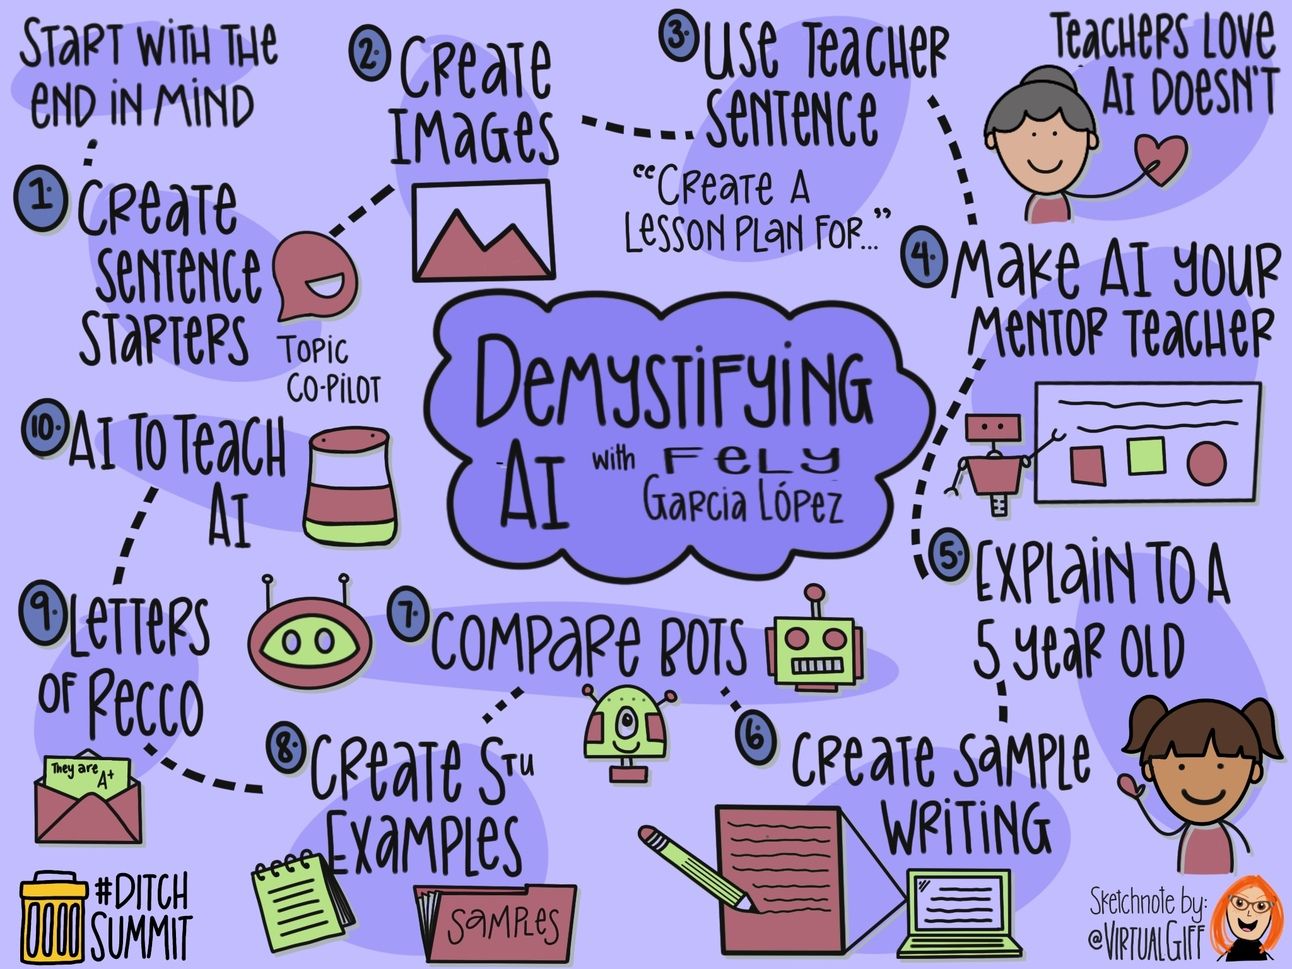 START WITH THE
END IN MIND
1.
CREATE
SENTENCE
STARTERS
TOPIC
CO-PILOT
2.
CREATE
IMAGES
3.
USE TEACHER
SENTENCE
"CREATE A
LESSON PLAN FOR..."
TEACHERS LOVE
AI DOESN'T
4.
MAKE AI YOUR
MENTOR TEACHER
DEMYSTIFYING
AI with FELY
GARCIA LÓPEZ
5.
EXPLAIN TO A
5 YEAR OLD
6.
CREATE SAMPLE
WRITING
7.
COMPARE BOTS
8.
CREATE STU
EXAMPLES
SAMPLES
9.
LETTERS
OF RECCO
They are
A+
10.
AI TO TEACH
AI
#DITCH
SUMMIT
Sketchnote by:
@VIRTUALGIFF